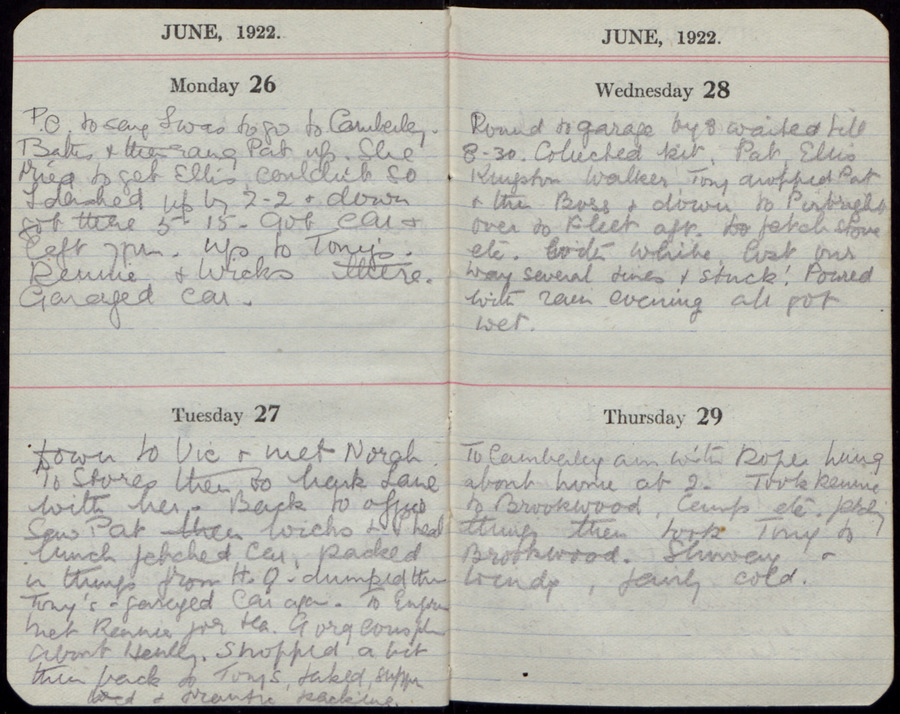 JUNE, 1922.
Monday 26
P.C. to say I was to go to Camberley.
Baths & then rang Pat up. She
tried to get Ellis couldn't so
I dashed up by 2-2 & down
got there 5-15. Got car &
left 7pm. up to Tony's.
Rennie & Wicks there.
Garaged car.
Tuesday 27
Down to Vic & met Norah
To Stores then to Park Lane
with her. Back to office
Saw Pat then Wicks & I had
lunch fetched car, packed
in things from H.Q. - dumped them
Tony's - garaged car again. To
met Rennie for tea. Gorgeous
about Henley. Shopped a bit
then back to Tony's, talked, supper
& frantic packing.
JUNE, 1922.
Wednesday 28
Round to garage by 8 waited till
8-30. Collected kit, Pat, Ellis
Kingston Walker. Tony dropped Pat
& the Boss & down to Pirbright
over to Fleet aft. to fetch stove
etc. with White. Lost our
way several times & stuck! Poured
with rain evening all got
wet.
Thursday 29
To Camberley a.m. with Roper hung
about home at 2. Took Rennie
to Brookwood, Camp etc.
things then took Tony to
Brookwood. Showery &
windy, fairly cold.